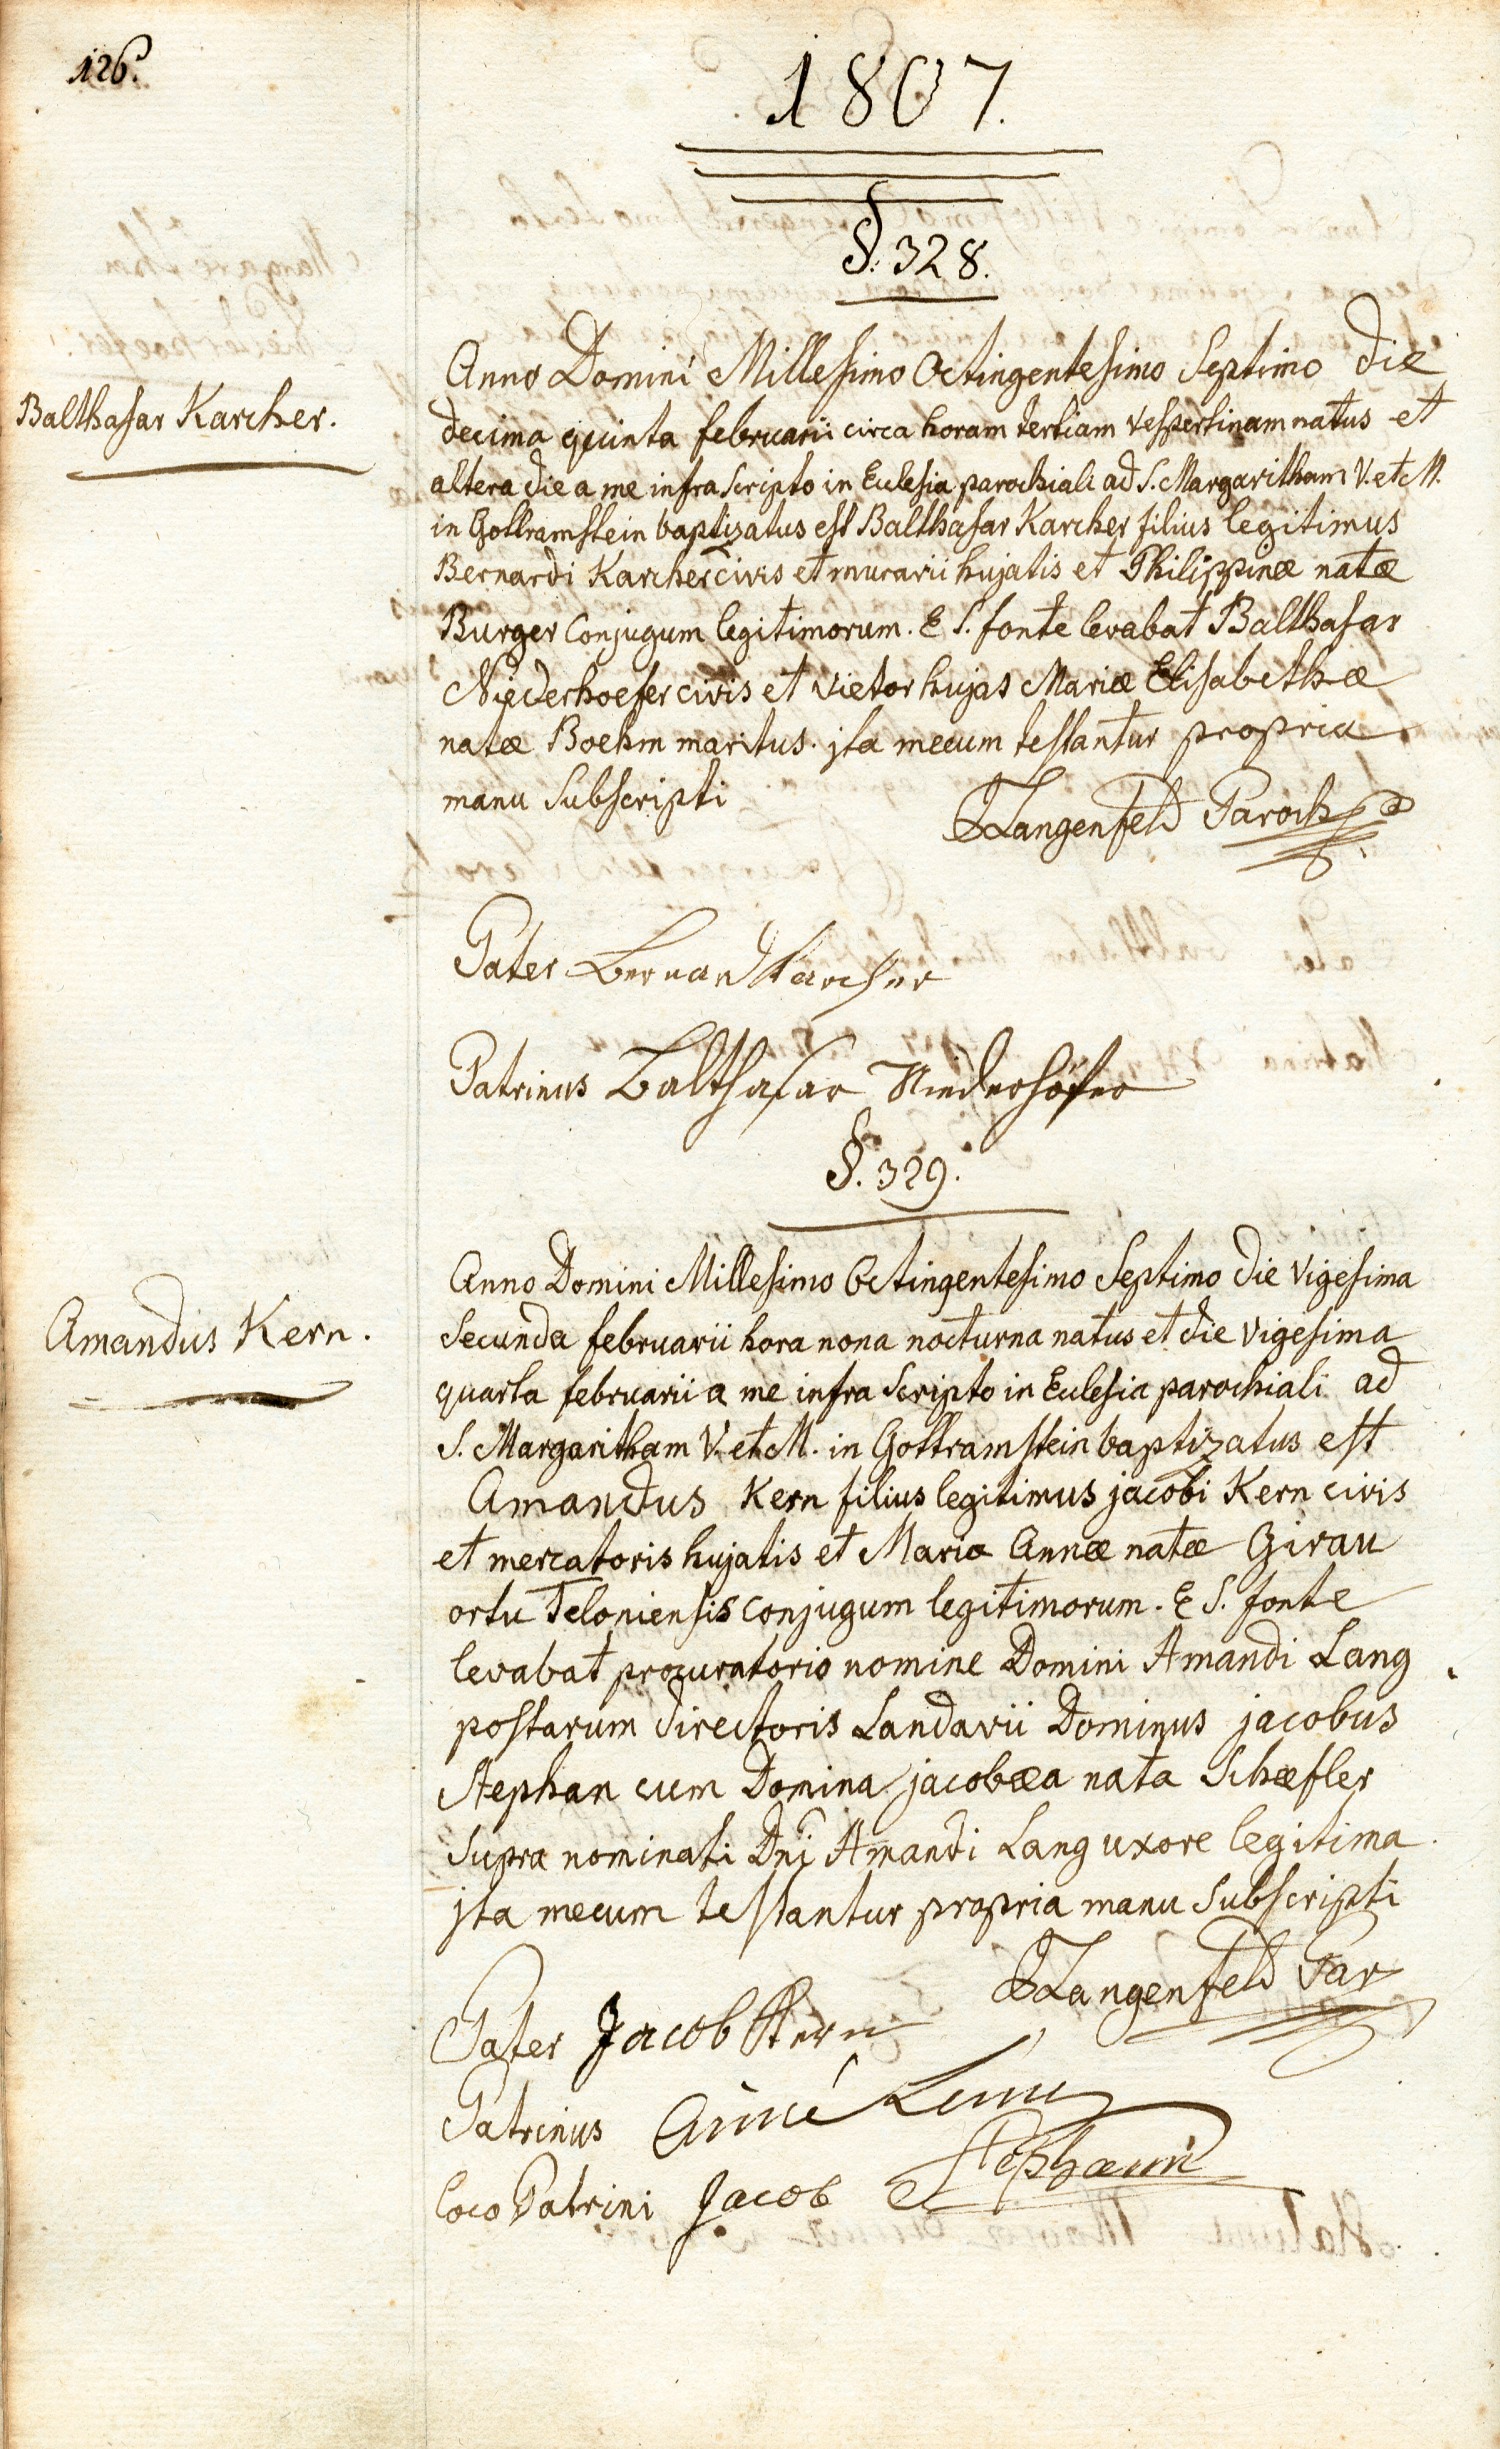 126.
1807.
§. 328.
Balthasar Karcher.
Anno Domini Millesimo Octingentesimo Septimo die
decima quinta februarii circa horam tertiam vespertinam natus et
altera die a me infra scripto in Eclesia parochiali ad S. Margaritham V. et M.
in Gottramstein baptizatus est Balthasar Karcher filius legitimus
Bernardi Karcher civis et murarii hujatis et Philippinæ natæ
Burger Conjugum legitimorum. E S. fonte levabat Balthasar
Niederhoefer civis et vietor hujas Mariæ Elisabethæ
natæ Boehm maritus. jta mecum testantur propria
manu subscripti
Langenfeld Paroch
Pater Bernard Karcher
Patrinus Balthasar Niederhöfer
§. 329.
Amandus Kern.
Anno Domini Millesimo Octingentesimo Septimo die vigesima
secunda februarii hora nona nocturna natus et die vigesima
quarta februarii a me infra scripto in Eclesia parochiali ad
S. Margaritham V. et M. in Gottramstein baptizatus est
Amandus Kern filius legitimus jacobi Kern civis
et mercatoris hujatis et Mariæ Annæ natæ Girau
ortu Teloniensis conjugum legitimorum. E S. fonte
levabat procuratorio nomine Domini Amandi Lang
postarum directoris Landavii Dominus jacobus
Stephan cum Domina jacobæa nata Schæfler
supra nominati Dni Amandi Lang uxore legitima
jta mecum testantur propria manu subscripti
Langenfeld Par
Pater Jacob Kern
Patrinus
loco Patrini Jacob Stephann